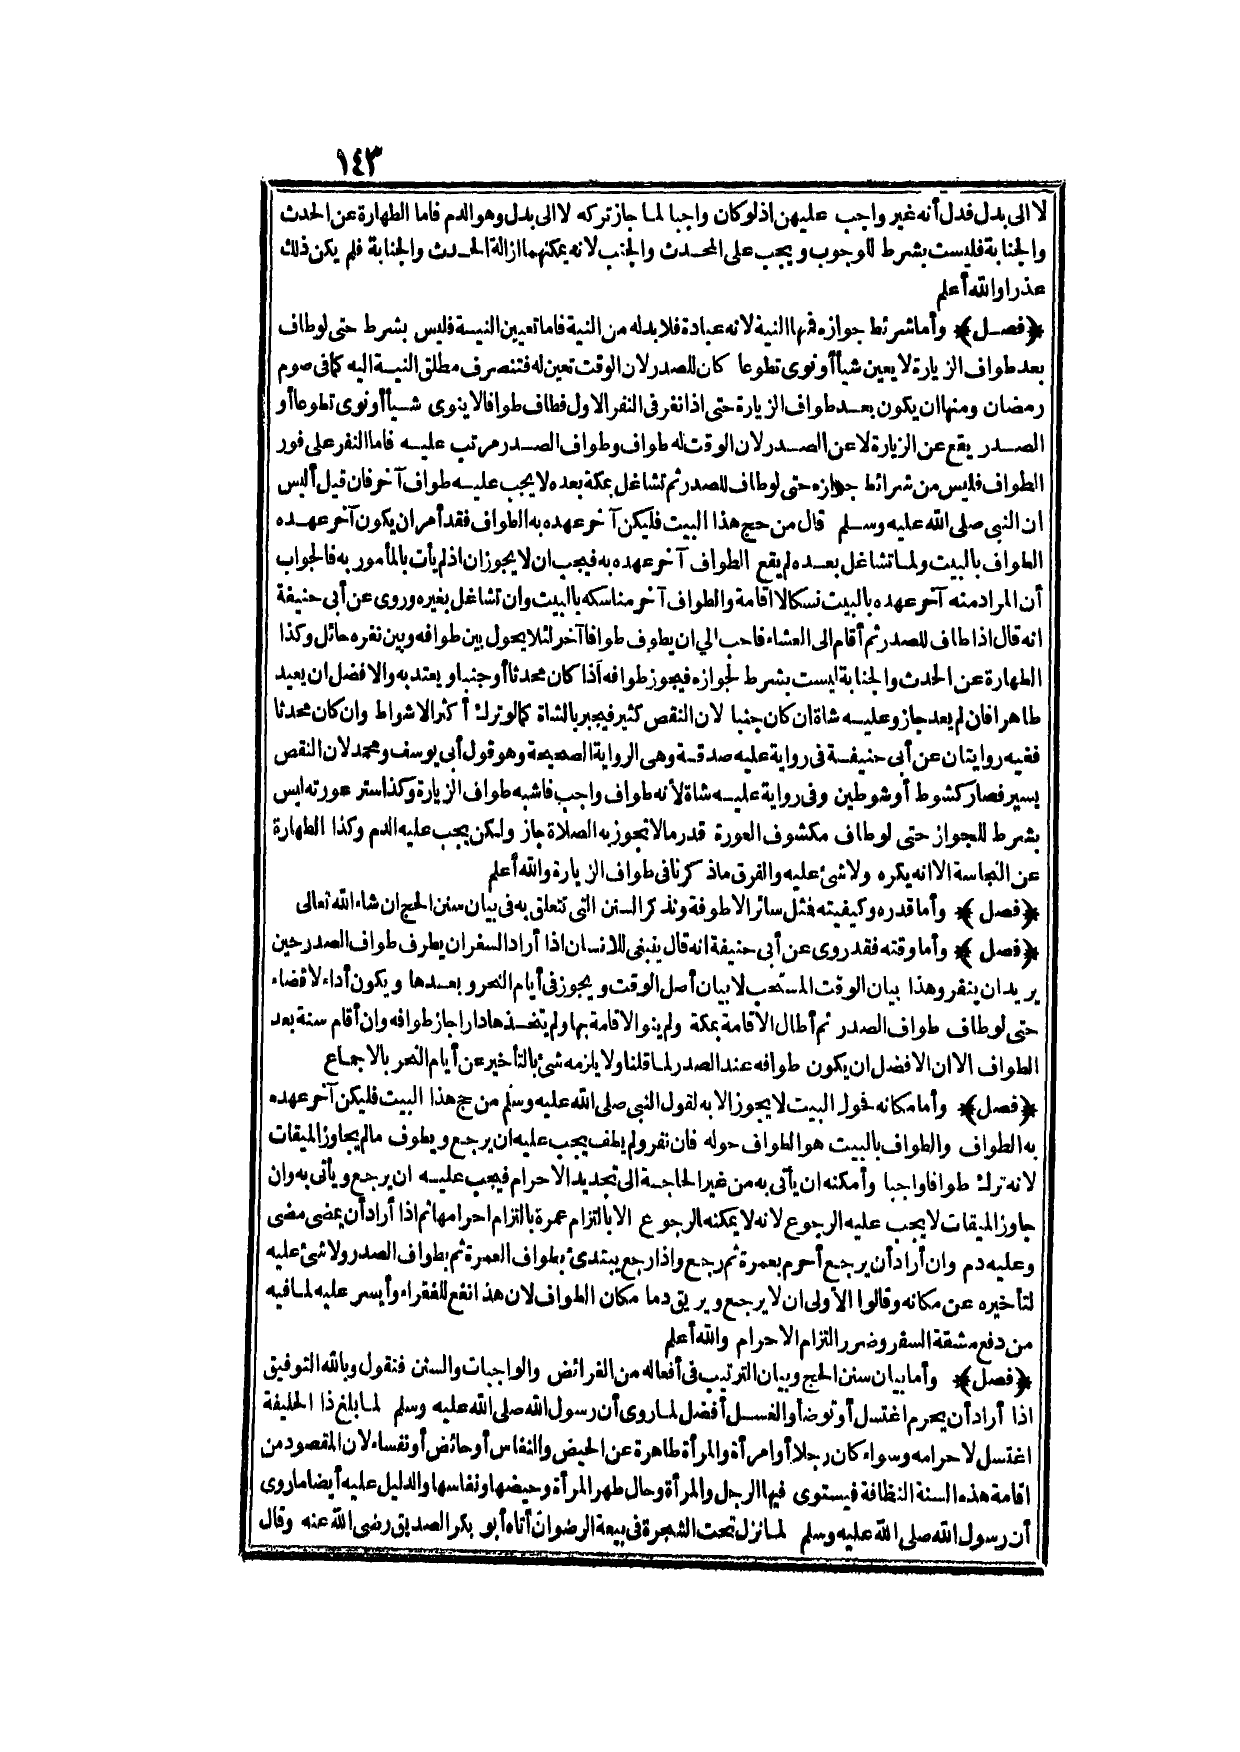 ١٤٣
لا الى بدل فدل أنه غير واجب عليهن اذلو كان واجبا لما جاز تركه لا الى بدل وهو الدم فاما الطهارة عن الحدث
والجنابة فليست بشرط للوجوب ويجب على المحدث والجنب لانه يمكنهما ازالة الحدث والجنابة فلم يكن ذلك
عذرا والله أعلم
﴿فصل﴾ وأما شرائط جوازه فمنها النية لانه عبادة فلا بد له من النية فاما تعيين النية فليس بشرط حتى لو طاف
بعد طواف الزيارة لا يعين شيأ أو نوى تطوعا كان للصدر لان الوقت تعين له فتنصرف مطلق النية اليه كما فى صوم
رمضان ومنها ان يكون بعد طواف الزيارة حتى اذا نفر فى النفر الاول فطاف طوافا لا ينوى شيأ أو نوى تطوعا أو
الصدر يقع عن الزيارة لا عن الصدر لان الوقت له طواف وطواف الصدر مرتب عليه فاما النفر على فور
الطواف فليس من شرائط جوازه حتى لو طاف للصدر ثم تشاغل بمكة بعده لا يجب عليه طواف آخر فان قيل أليس
ان النبى صلى الله عليه وسلم قال من حج هذا البيت فليكن آخر عهده به الطواف فقد أمر ان يكون آخر عهده
الطواف بالبيت ولما تشاغل بعده لم يقع الطواف آخر عهده به فيجب ان لا يجوز ان اذ لم يأت بالمأمور به فالجواب
أن المراد منه آخر عهده بالبيت نسكا لا اقامة والطواف آخر مناسكه بالبيت وان تشاغل بغيره وروى عن أبى حنيفة
انه قال اذا طاف للصدر ثم أقام الى العشاء فاحب الي ان يطوف طوافا آخر لئلا يحول بين طوافه وبين نفره حائل وكذا
الطهارة عن الحدث والجنابة ليست بشرط لجوازه فيجوز طوافه اذا كان محدثا أو جنبا ويعتد به والافضل ان يعيد
طاهرا فان لم يعد جاز وعليه شاة ان كان جنبا لان النقص كثير فيجبر بالشاة كما لو ترك أكثر الاشواط وان كان محدثا
ففيه روايتان عن أبى حنيفة فى رواية عليه صدقة وهى الرواية الصحيحة وهو قول أبى يوسف ومحمد لان النقص
يسير فصار كشوط أو شوطين وفى رواية عليه شاة لأنه طواف واجب فاشبه طواف الزيارة وكذا ستر عورته ليس
بشرط للجواز حتى لو طاف مكشوف العورة قدر ما لا تجوز به الصلاة جاز ولكن يجب عليه الدم وكذا الطهارة
عن النجاسة الا انه يكره ولا شئ عليه والفرق ما ذكرنا فى طواف الزيارة والله أعلم
﴿فصل﴾ وأما قدره وكيفيته فمثل سائر الاطوفة ونذكر السنن التى تتعلق به فى بيان سنن الحج ان شاء الله تعالى
﴿فصل﴾ وأما وقته فقد روى عن أبى حنيفة انه قال ينبغى للانسان اذا أراد السفر ان يطوف طواف الصدر حين
يريد ان ينفر وهذا بيان الوقت المستحب لا بيان أصل الوقت ويجوز فى أيام النحر وبعدها ويكون أداء لا قضاء
حتى لو طاف طواف الصدر ثم أطال الاقامة بمكة ولم ينو الاقامة بها ولم يتخذها دارا جاز طوافه وان أقام سنة بعد
الطواف الا ان الافضل ان يكون طوافه عند الصدر لما قلنا ولا يلزمه شئ بالتأخير عن أيام النحر بالاجماع
﴿فصل﴾ وأما مكانه فحول البيت لا يجوز الا به لقول النبى صلى الله عليه وسلم من حج هذا البيت فليكن آخر عهده
به الطواف والطواف بالبيت هو الطواف حوله فان نفر ولم يطف يجب عليه ان يرجع ويطوف ما لم يجاوز الميقات
لانه ترك طوافا واجبا وأمكنه ان يأتى به من غير الحاجة الى تجديد الاحرام فيجب عليه ان يرجع ويأتى به وان
جاوز الميقات لا يجب عليه الرجوع لانه لا يمكنه الرجوع الا بالتزام عمرة بالتزام احرامها ثم اذا أراد أن يمضى مضى
وعليه دم وان أراد أن يرجع أحرم بعمرة ثم رجع واذا رجع يبتدئ بطواف العمرة ثم بطواف الصدر ولا شئ عليه
لتأخيره عن مكانه وقالوا الاولى ان لا يرجع ويريق دما مكان الطواف لان هذا انفع للفقراء وأيسر عليه لما فيه
من دفع مشقة السفر وضرر التزام الاحرام والله أعلم
﴿فصل﴾ وأما بيان سنن الحج وبيان الترتيب فى أفعاله من الفرائض والواجبات والسنن فنقول وبالله التوفيق
اذا أراد أن يحرم اغتسل أو توضأ والغسل أفضل لما روى أن رسول الله صلى الله عليه وسلم لما بلغ ذا الحليفة
اغتسل لاحرامه وسواء كان رجلا أو امرأة والمرأة طاهرة عن الحيض والنفاس أو حائض أو نفساء لان المقصود من
اقامة هذه السنة النظافة فيستوى فيها الرجل والمرأة وحال طهر المرأة وحيضها ونفاسها والدليل عليه أيضا ما روى
أن رسول الله صلى الله عليه وسلم لما نزل تحت الشجرة فى بيعة الرضوان أتاه أبو بكر الصديق رضى الله عنه وقال